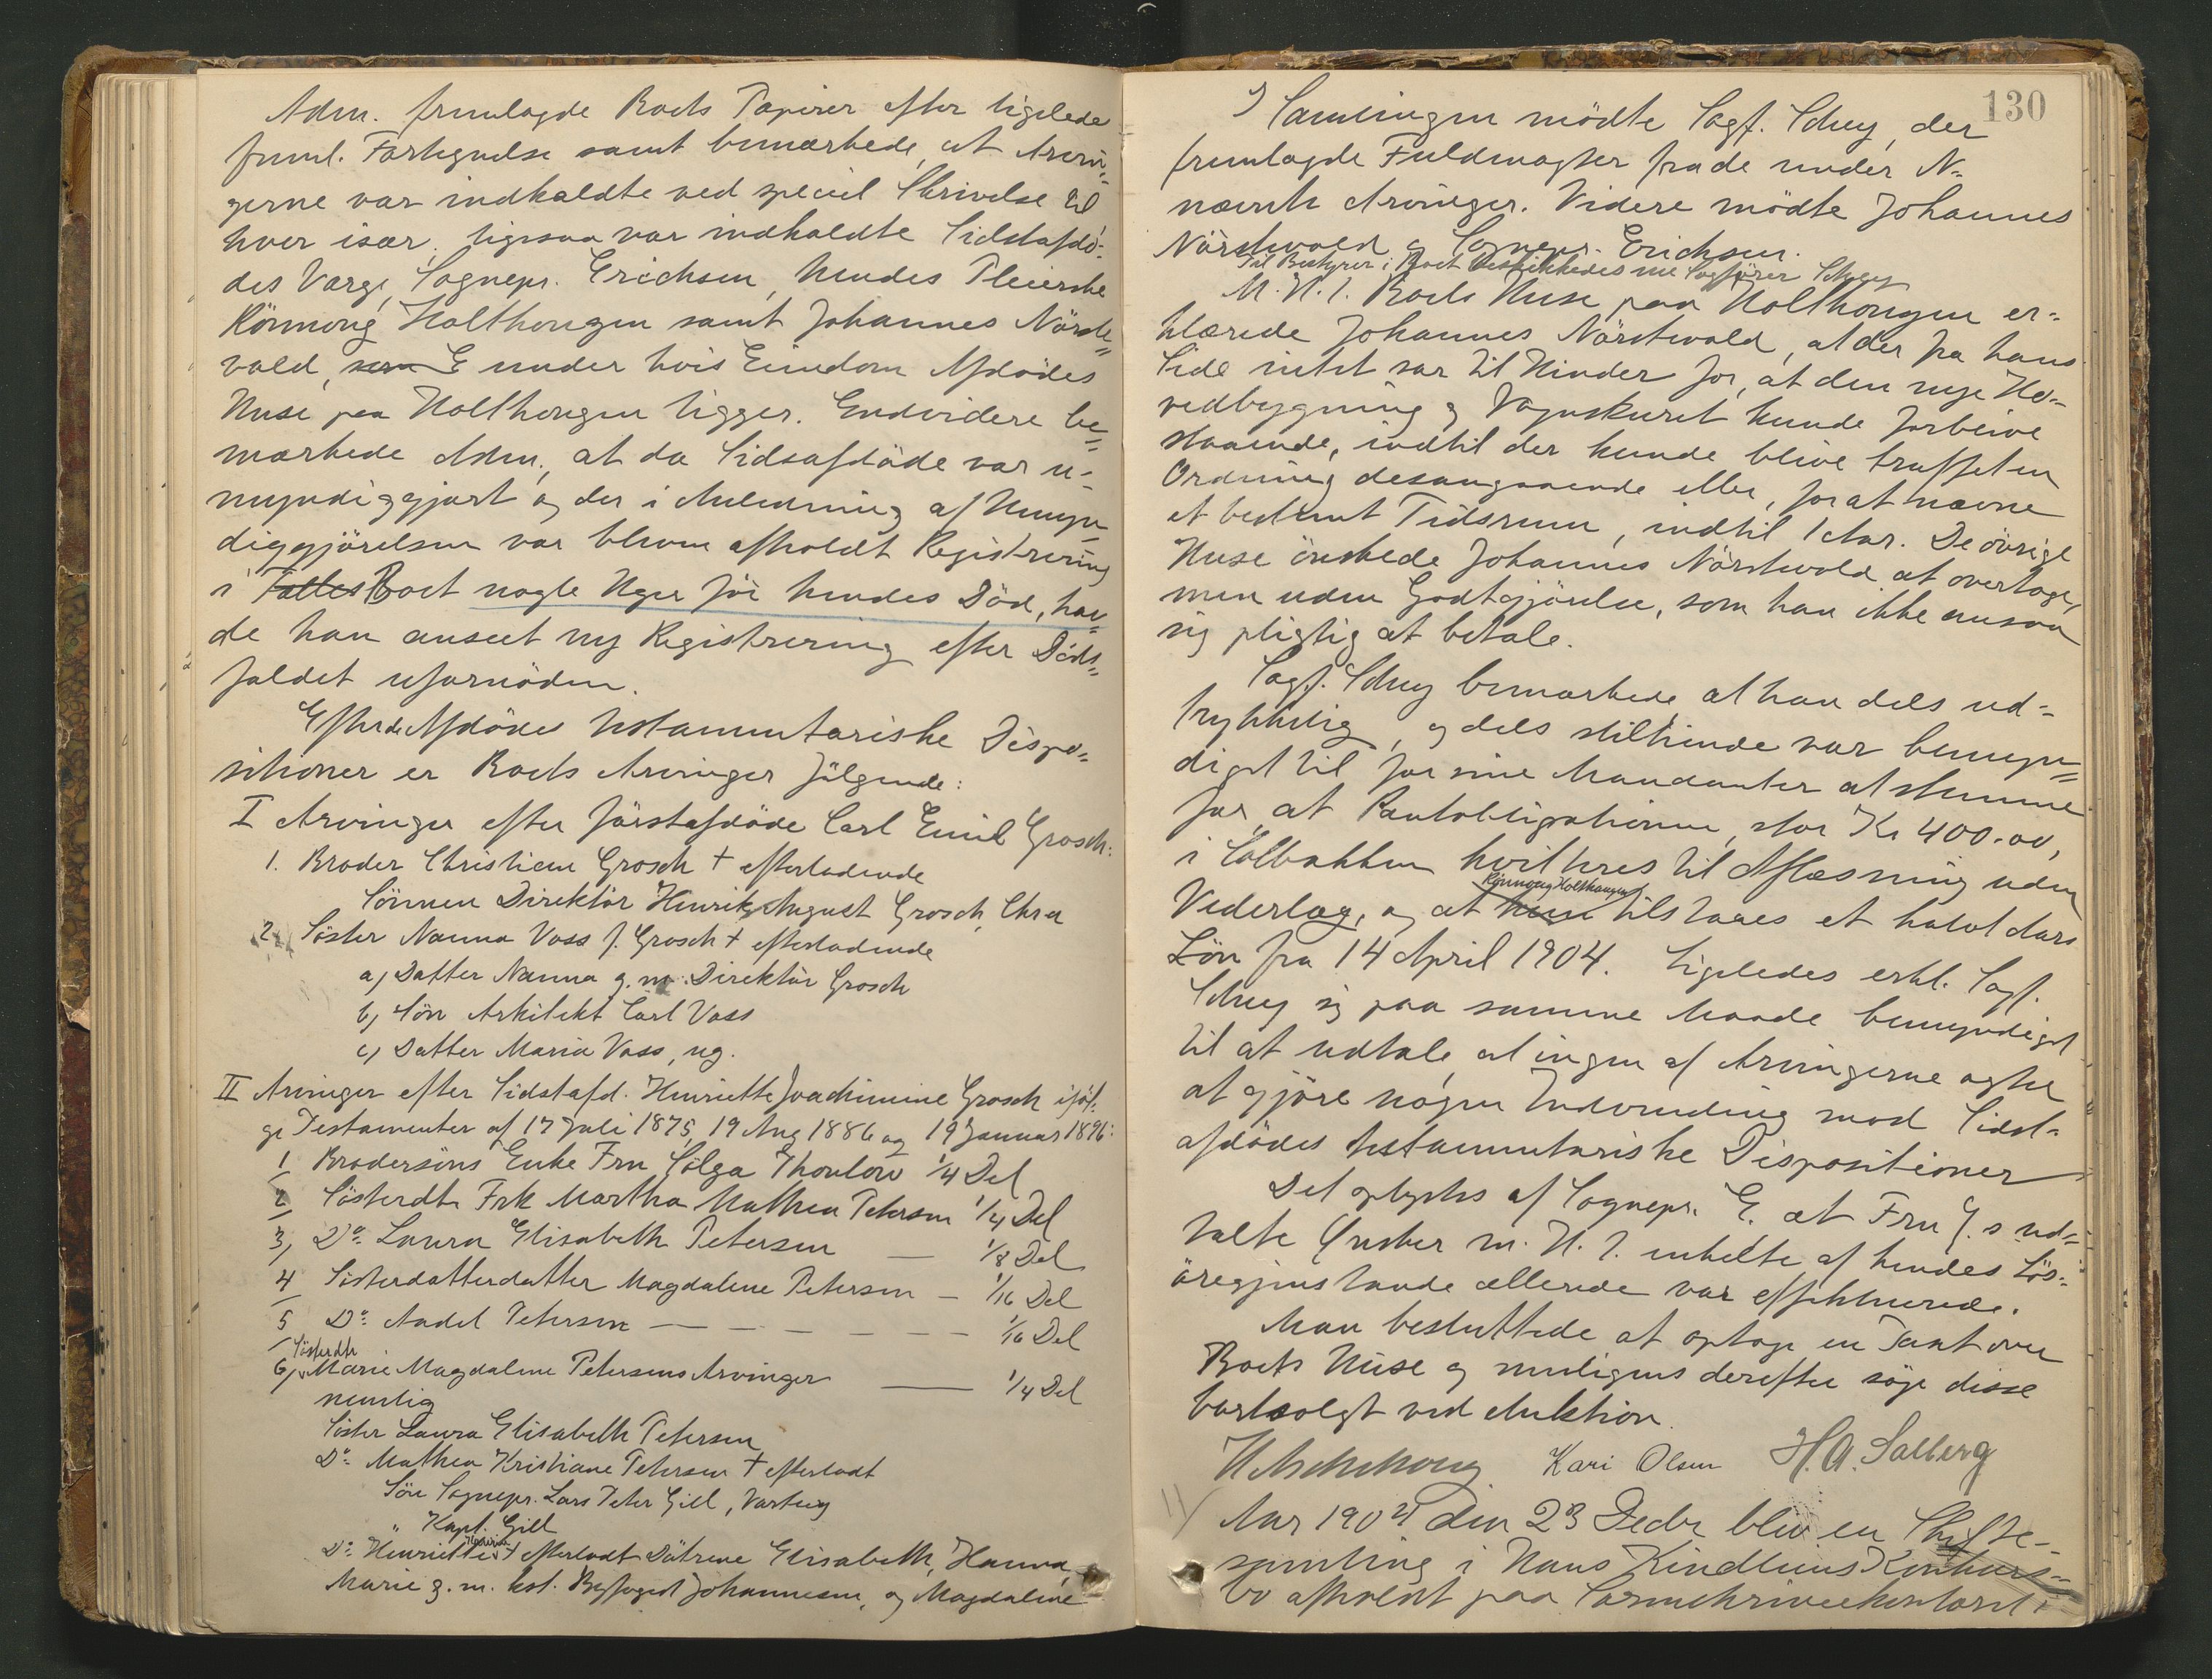 Adm. fremlagde Boets Papirer efter ligeledes
freml. Fortegnelse samt bemærkede, at Arvin-
gerne var indkaldte ved speciel Skrivelse til
hver især, ligesaa var indkaldte Sidstafdö-
des Værge, Sognepr. Erichsen, hendes Pleierske
Rönnoug Holthougen samt Johannes Nörste-
vold, som E under hvis Eiendom Afdödes
Huse paa Holthougen ligger. Endvidere be-
mærkede Adm., at da Sidsafdöde var u-
myndiggjort og der i Anledning af Umyn-
diggjörelsen var bleven afholdt Registrering
i Fælles Boet nogle Uger för hendes Död, hav-
de han anseet ny Registrering efter Döds-
faldet ufornöden.
Efter de Afdödes testamentariske Dispo-
sitioner er Boets Arvinger fölgende:
I Arvinger efter förstafdöde Carl Emil Grosch:
1. Broder Christian Grosch † efterladende
Sönnen Direktör Henrik August Grosch, Chra
2. Söster Nanna Voss f. Grosch † efterladende
a, Datter Nanna g. m. Direktör Grosch
b, Sön Arkitekt Carl Voss
c, Datter Maria Voss, ug.
II Arvinger efter Sidstafd. Henriette Joachimine Grosch iföl-
ge Testamenter af 17 Juli 1875, 19 Aug 1886 og 19 Januar 1896:
1 Brodersöns Enke Fru Sölga Thoulow 1/4 Del
2 Sösterdtr Frk Martha Mathea Petersen 1/4 Del
3, Do Laura Elisabeth Petersen — 1/8 Del
4 Sösterdatterdatter Magdalene Petersen — 1/16 Del
5 Do Andel Petersen — — — — 1/16 Del
Sösterdtr
6, Marie Magdalene Petersens Arvinger — 1/4 Del
nemlig
Söster Laura Elisabeth Petersen
Do Mathea Kristiane Petersen † efterladt
Sön Sognepr. Lars Peter Gill, Varteig
" Kapt. Gill
Do Henriette † efterladt Dötrene Elisabeth, Hanna,
Marie g. m. kst. Byfoged Johannesen, og Magdalene
130
I Samlingen mödte Sagf. Schey, der
fremlagde Fuldmagter fra de under N-
nævnte Arvinger. Videre mödte Johannes
Nörstevold og Sognepr. Erichsen.
Til Bestyrer i Boet beskikkedes nu Sagförer Schey
M. H. t. Boets Huse paa Holthougen er-
klærede Johannes Nörstevold, at der fra hans
Side intet var til Hinder for, at den nye Ho-
vedbygning og Vognskuret kunde forblive
staaende, indtil der kunde blive truffet en
Ordning desangaaende eller, for at nævne
et bestemt Tidsrum, indtil 1 Aar. De övrige
Huse önskede Johannes Nörstevold at overtage,
men uden Godtgjörelse, som han ikke ansaa
sig pligtig at betale.
Sagf. Schey bemærkede, at han dels ud-
trykkelig, og dels stiltiende var bemyn-
diget til for sine Mandanter at stemme
for at Pantobligationen, stor Kr 400.00,
i Solbakken kvitteres til Aflæsning uden
Rönnoug Holthaugen
Vederlag, og at hun tilstaaes et halvt Aars
Lön fra 14 April 1904. Ligeledes erkl. Sagf.
Schey sig paa samme Maade bemyndiget
til at udtale, at ingen af Arvingerne agter
at gjöre nogen Indvending mod Sidst-
afdödes testamentariske Dispositioner
Det oplystes af Sognepr. E. at Fru G.s ud-
talte Önsker m. H. t. enkelte af hendes Lös-
öregjenstande allerede var effektuerede.
Man besluttede at optage en Taxt over
Boets Huse og muligens derefter söge disse
bortsolgt ved Auktion.
Kari Olsen H. A. Solberg
Aar 1904 den 23 Decbr blev en Skifte-
samling i Hans Kindliens Konkurs-
bo afholdt paa Sorenskriverkontoret i